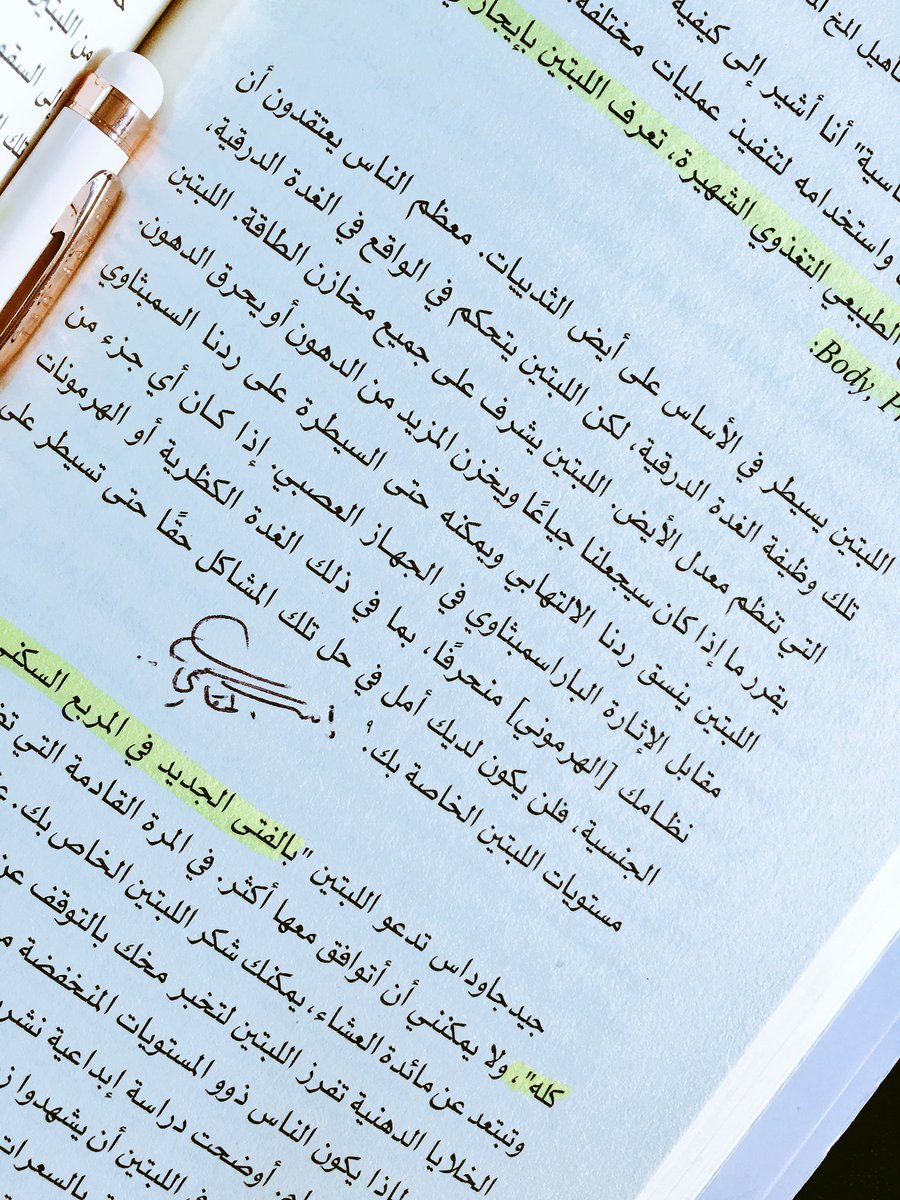 من اللبتين
إلى السقو
تلك
تأهيل المخ
اسية" أنا أشير إلى كيفية
واستخدامه لتنفيذ عمليات مختلفة.
الطبيعي التغذوي الشهيرة، تعرف اللبتين بإيجاز
Body, P
اللبتين يسيطر في الأساس على أيض الثدييات. معظم الناس يعتقدون أن
تلك وظيفة الغدة الدرقية، لكن اللبتين يتحكم في الواقع في الغدة الدرقية،
التي تنتظم معدل الأيض. اللبتين يشرف على جميع مخازن الطاقة. اللبتين
يقرر ما إذا كان سيجعلنا جياعًا ويخزن المزيد من الدهون أو يحرق الدهون.
اللبتين ينسق ردنا الالتهابي ويمكنه حتى السيطرة على ردنا السمبثاوي
مقابل الإثارة الباراسمبثاوي في الجهاز العصبي. إذا كان أي جزء من
نظامك [الهرموني] منحرفًا، بما في ذلك الغدة الكظرية أو الهرمونات
الجنسية، فلن يكون لديك أمل في حل تلك المشاكل حقًا حتى تسيطر على
مستويات اللبتين الخاصة بك.٩
جيدجاوداس تدعو اللبتين "بالفتى الجديد في المربع السكني
كله"، ولا يمكنني أن أتوافق معها أكثر. في المرة القادمة التي
وتبتعد عن مائدة العشاء، يمكنك شكر اللبتين الخاص بك.
الخلايا الدهنية تفرز اللبتين لتخبر مخك بالتوقف عن
لماذا يكون الناس ذوو المستويات المنخفضة
أوضحت دراسة إبداعية نشر
في اللبتين أن يشهدوا
بالسعرات